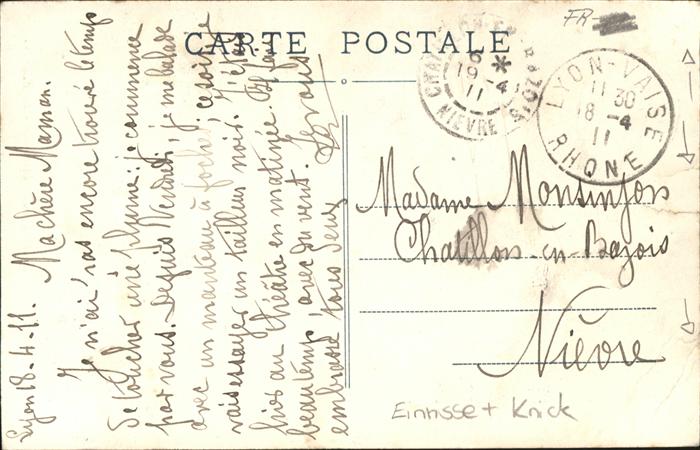 CARTE POSTALE
FR-
LYON-VAISE
11 30
18 -4
11
RHONE
6 *
19 -4
11
NIEVRE
Madame Monsinjon
Chatillon en-Bazois
Nièvre
Einrisse + Knick
Lyon 18.4.11. Ma chère Maman.
Je n'ai pas encore trouvé le temps
de toucher une plume: je commence
par vous. Depuis Vendredi, je me balade
avec un manteau à ce soir
un tailleur noir. J'
au théâtre en matinée.
beau temps avec du vent. Je vous
embrasse tous deux